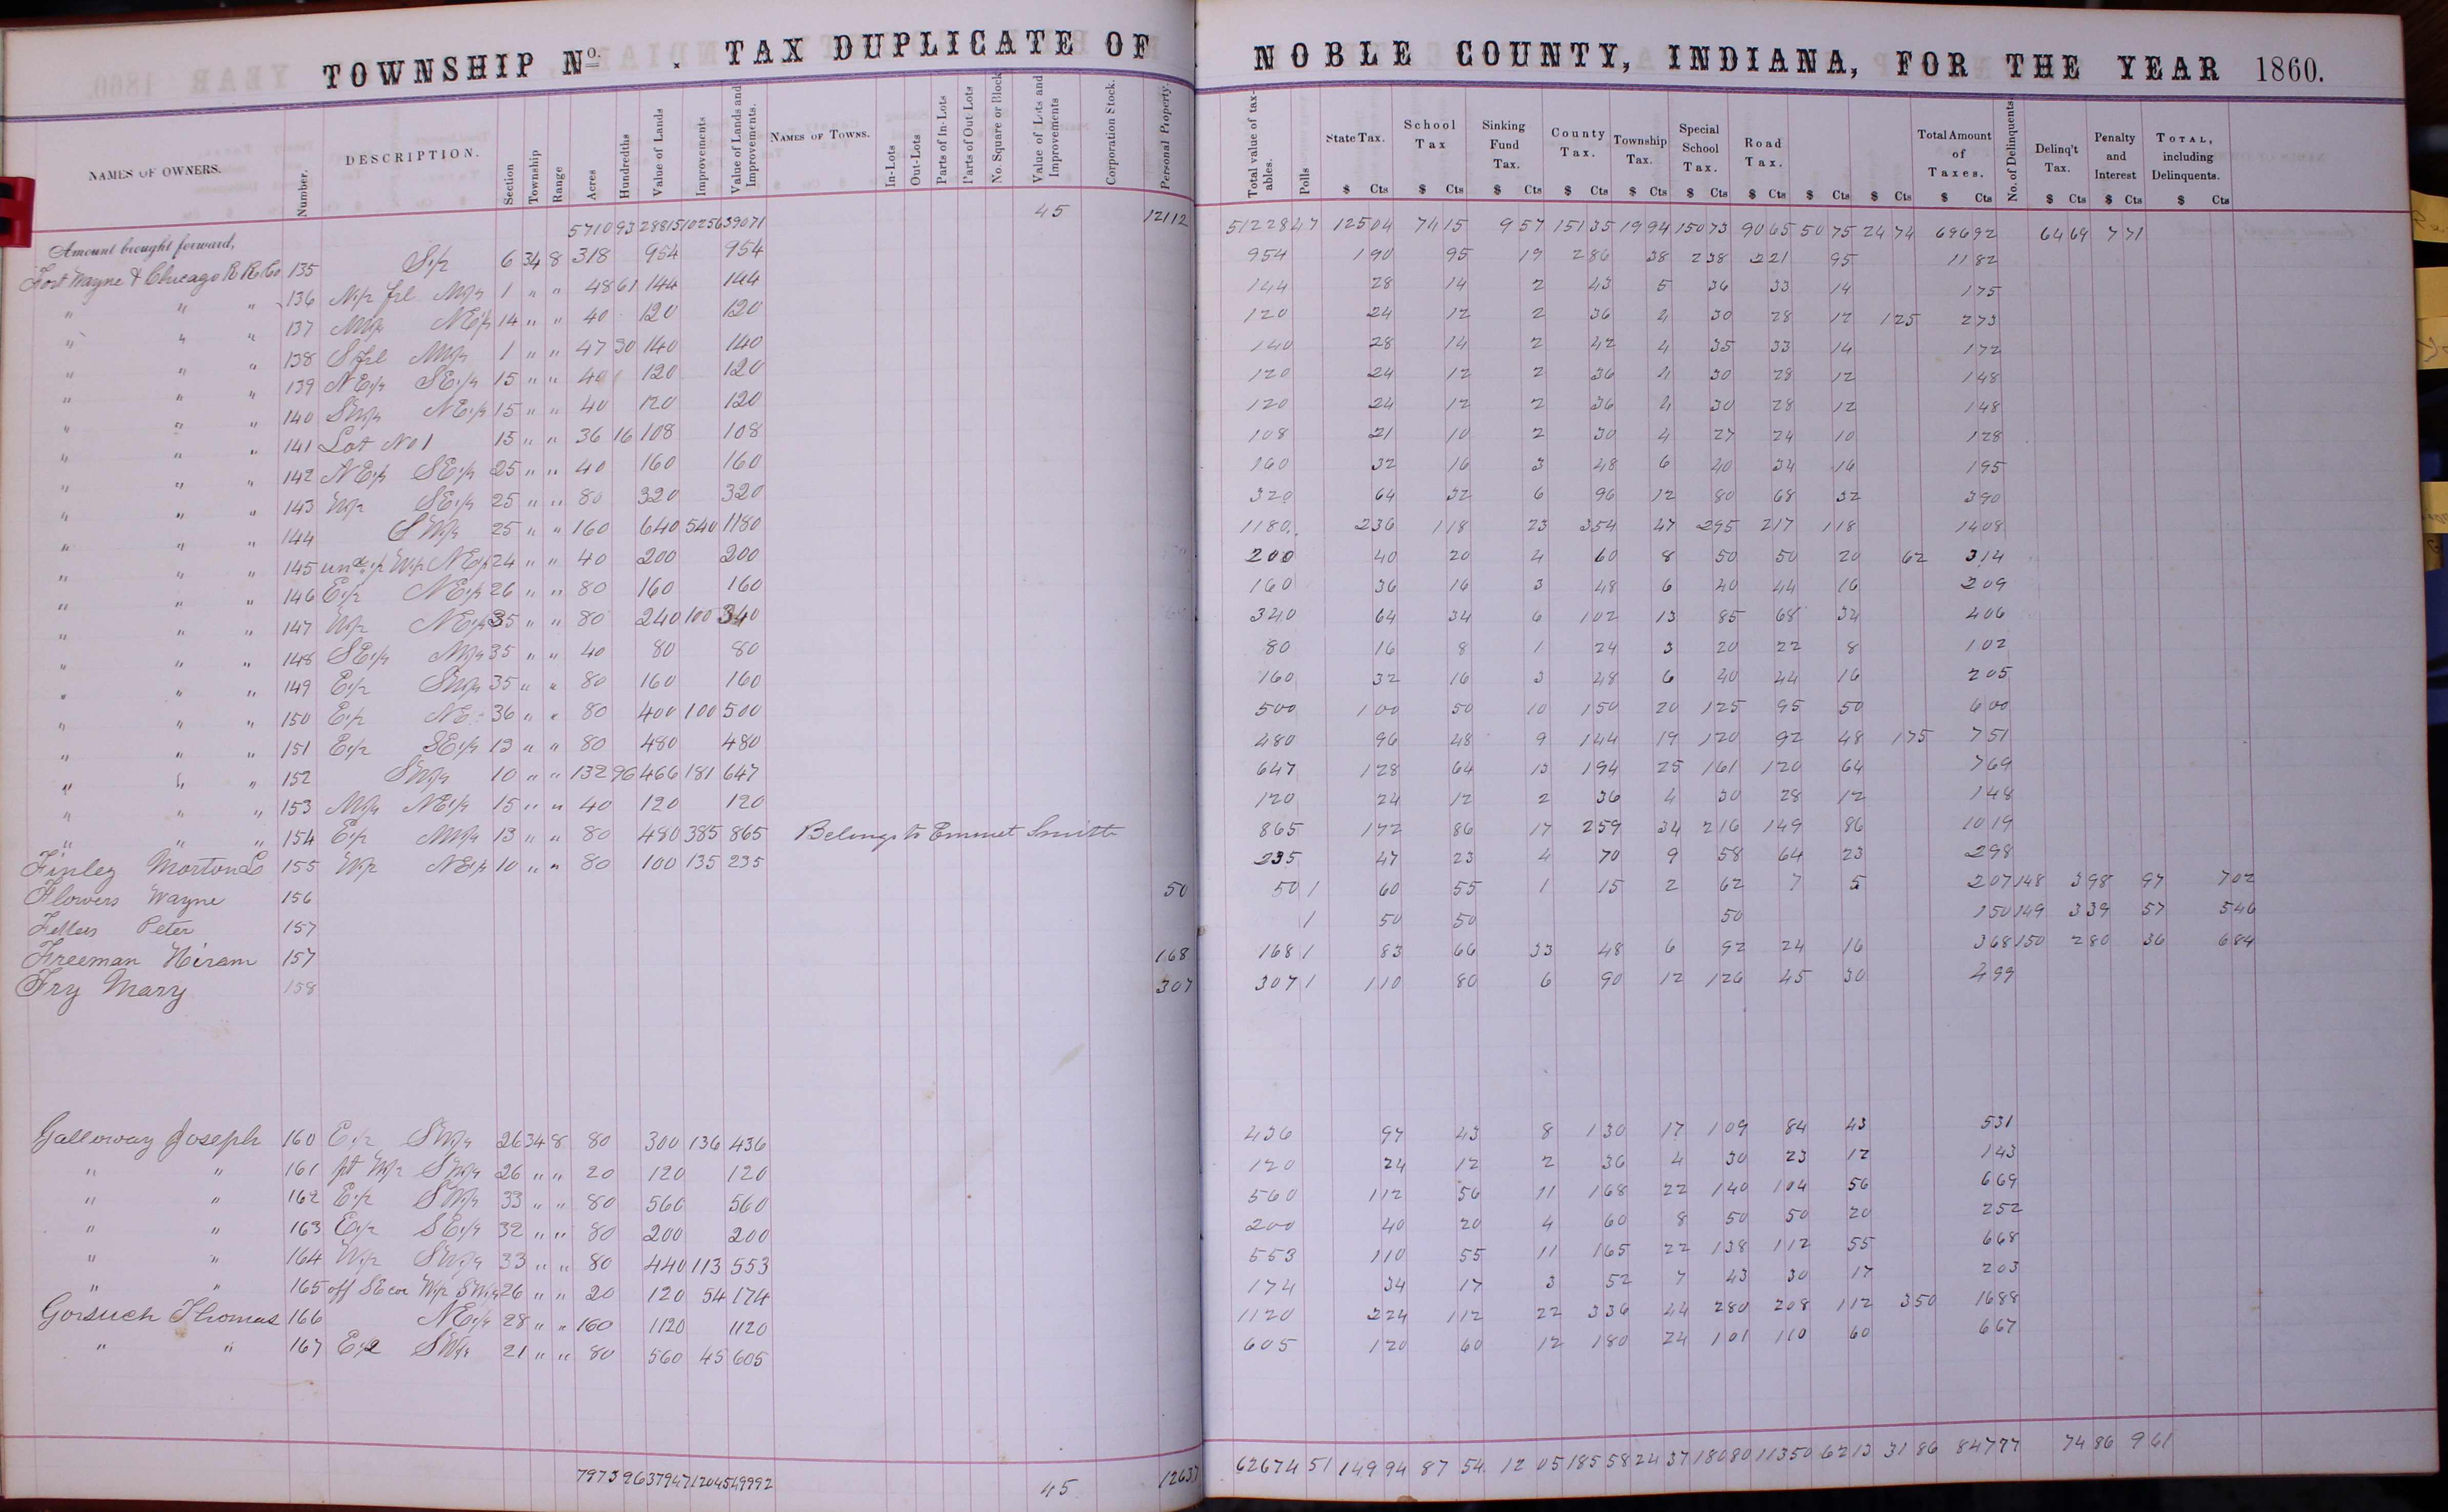 TOWNSHIP No. . TAX DUPLICATE OF NOBLE COUNTY, INDIANA, FOR THE YEAR 1860.
NAMES OF OWNERS. Number. DESCRIPTION. Section Township Range Acres Hundredths Value of Lands Improvements Value of Lands and Improvements. NAMES OF TOWNS. In-Lots Out-Lots Parts of In-Lots Parts of Out Lots No. Square or Block Value of Lots and Improvements Corporation Stock. Personal Property. Total value of taxables. Polls State Tax. School Tax Sinking Fund Tax. County Tax. Township Tax. Special School Tax. Road Tax. Total Amount of Taxes. No. of Delinquents. Delinq't Tax. Penalty and Interest TOTAL, including Delinquents.
$ Cts $ Cts $ Cts $ Cts $ Cts $ Cts $ Cts $ Cts $ Cts $ Cts $ Cts $ Cts $ Cts
Amount brought forward, 5710 93 28815 10256 39071 45 12112 51228 47 125 04 74 15 9 57 151 35 19 94 150 73 90 65 50 75 24 74 696 92 64 69 7 71
Fort Wayne & Chicago R R Co 135 S1/2 6 34 8 318 954 954 954 1 90 95 19 2 86 38 2 38 2 21 95 11 82
" " " 136 N1/2 frl NW1/4 1 " " 48 61 144 144 144 28 14 2 43 5 36 33 14 1 75
" " " 137 NW1/4 NE1/4 14 " " 40 120 120 120 24 12 2 36 4 30 28 12 1 25 2 73
" " " 138 S frl NW1/4 1 " " 47 30 140 140 140 28 14 2 42 4 35 33 14 1 72
" " " 139 NE1/4 SE1/4 15 " " 40 120 120 120 24 12 2 36 4 30 28 12 1 48
" " " 140 SW1/4 NE1/4 15 " " 40 120 120 120 24 12 2 36 4 30 28 12 1 48
" " " 141 Lot No 1 15 " " 36 16 108 108 108 21 10 2 30 4 27 24 10 1 28
" " " 142 NE1/4 SE1/4 25 " " 40 160 160 160 32 16 3 48 6 40 34 16 1 95
" " " 143 W1/2 SE1/4 25 " " 80 320 320 320 64 32 6 96 12 80 68 32 3 90
" " " 144 SW1/4 25 " " 160 640 540 1180 1180 2 36 1 18 23 3 54 47 2 95 2 17 1 18 14 08
" " " 145 und 1/2 W1/2 NE1/4 24 " " 40 200 200 200 40 20 4 60 8 50 50 20 62 3 14
" " " 146 E1/2 NE1/4 26 " " 80 160 160 160 36 16 3 48 6 40 44 16 2 09
" " " 147 W1/2 NE1/4 35 " " 80 240 100 340 340 64 34 6 1 02 13 85 68 34 4 06
" " " 148 SE1/4 NW1/4 35 " " 40 80 80 80 16 8 1 24 3 20 22 8 1 02
" " " 149 E1/2 SW1/4 35 " " 80 160 160 160 32 16 3 48 6 40 44 16 2 05
" " " 150 E1/2 NE 36 " " 80 400 100 500 500 1 00 50 10 1 50 20 1 25 95 50 6 00
" " " 151 E1/2 SE1/4 13 " " 80 480 480 480 96 48 9 1 44 19 1 20 92 48 1 75 7 51
" " " 152 SW1/4 10 " " 132 96 466 181 647 647 1 28 64 13 1 94 25 1 61 1 20 64 7 69
" " " 153 NW1/4 NE1/4 15 " " 40 120 120 120 24 12 2 36 4 30 28 12 1 48
" " " 154 E1/2 NW1/4 13 " " 80 480 385 865 Belongs to Emmet Smith 865 1 72 86 17 2 59 34 2 16 1 49 86 10 19
Finley Morton 155 W1/2 NE1/4 10 " " 80 100 135 235 235 47 23 4 70 9 58 64 23 2 98
Flowers Wayne 156 50 50 1 60 55 1 15 2 62 7 5 2 07 148 3 98 97 7 02
Fetters Peter 157 1 50 50 50 1 50 149 3 39 57 5 46
Freeman Hiram 157 168 168 1 83 66 33 48 6 92 24 16 3 68 150 2 80 36 6 84
Fry Mary 158 307 307 1 1 10 80 6 90 12 1 26 45 30 4 99
Galloway Joseph 160 E1/2 SW1/4 26 34 8 80 300 136 436 436 97 43 8 1 30 17 1 09 84 43 5 31
" " 161 pt W1/2 SW1/4 26 " " 20 120 120 120 24 12 2 36 4 30 23 12 1 43
" " 162 E1/2 SW1/4 33 " " 80 560 560 560 1 12 56 11 1 68 22 1 40 1 04 56 6 69
" " 163 E1/2 SE1/4 32 " " 80 200 200 200 40 20 4 60 8 50 50 20 2 52
" " 164 W1/2 SW1/4 33 " " 80 440 113 553 553 1 10 55 11 1 65 22 1 38 1 12 55 6 68
" " 165 off SE cor W1/2 SW1/4 26 " " 20 120 54 174 174 34 17 3 52 7 43 30 17 2 03
Gorsuch Thomas 166 NE1/4 28 " " 160 1120 1120 1120 2 24 1 12 22 3 36 44 2 80 2 08 1 12 3 50 16 88
" " 167 E1/2 SW1/4 21 " " 80 560 45 605 605 1 20 60 12 1 80 24 1 01 1 10 60 6 67
7973 26 37947 12045 49992 45 12637 62674 51 149 94 87 54 12 05 185 58 24 37 180 80 113 50 62 13 31 86 847 77 74 86 9 61